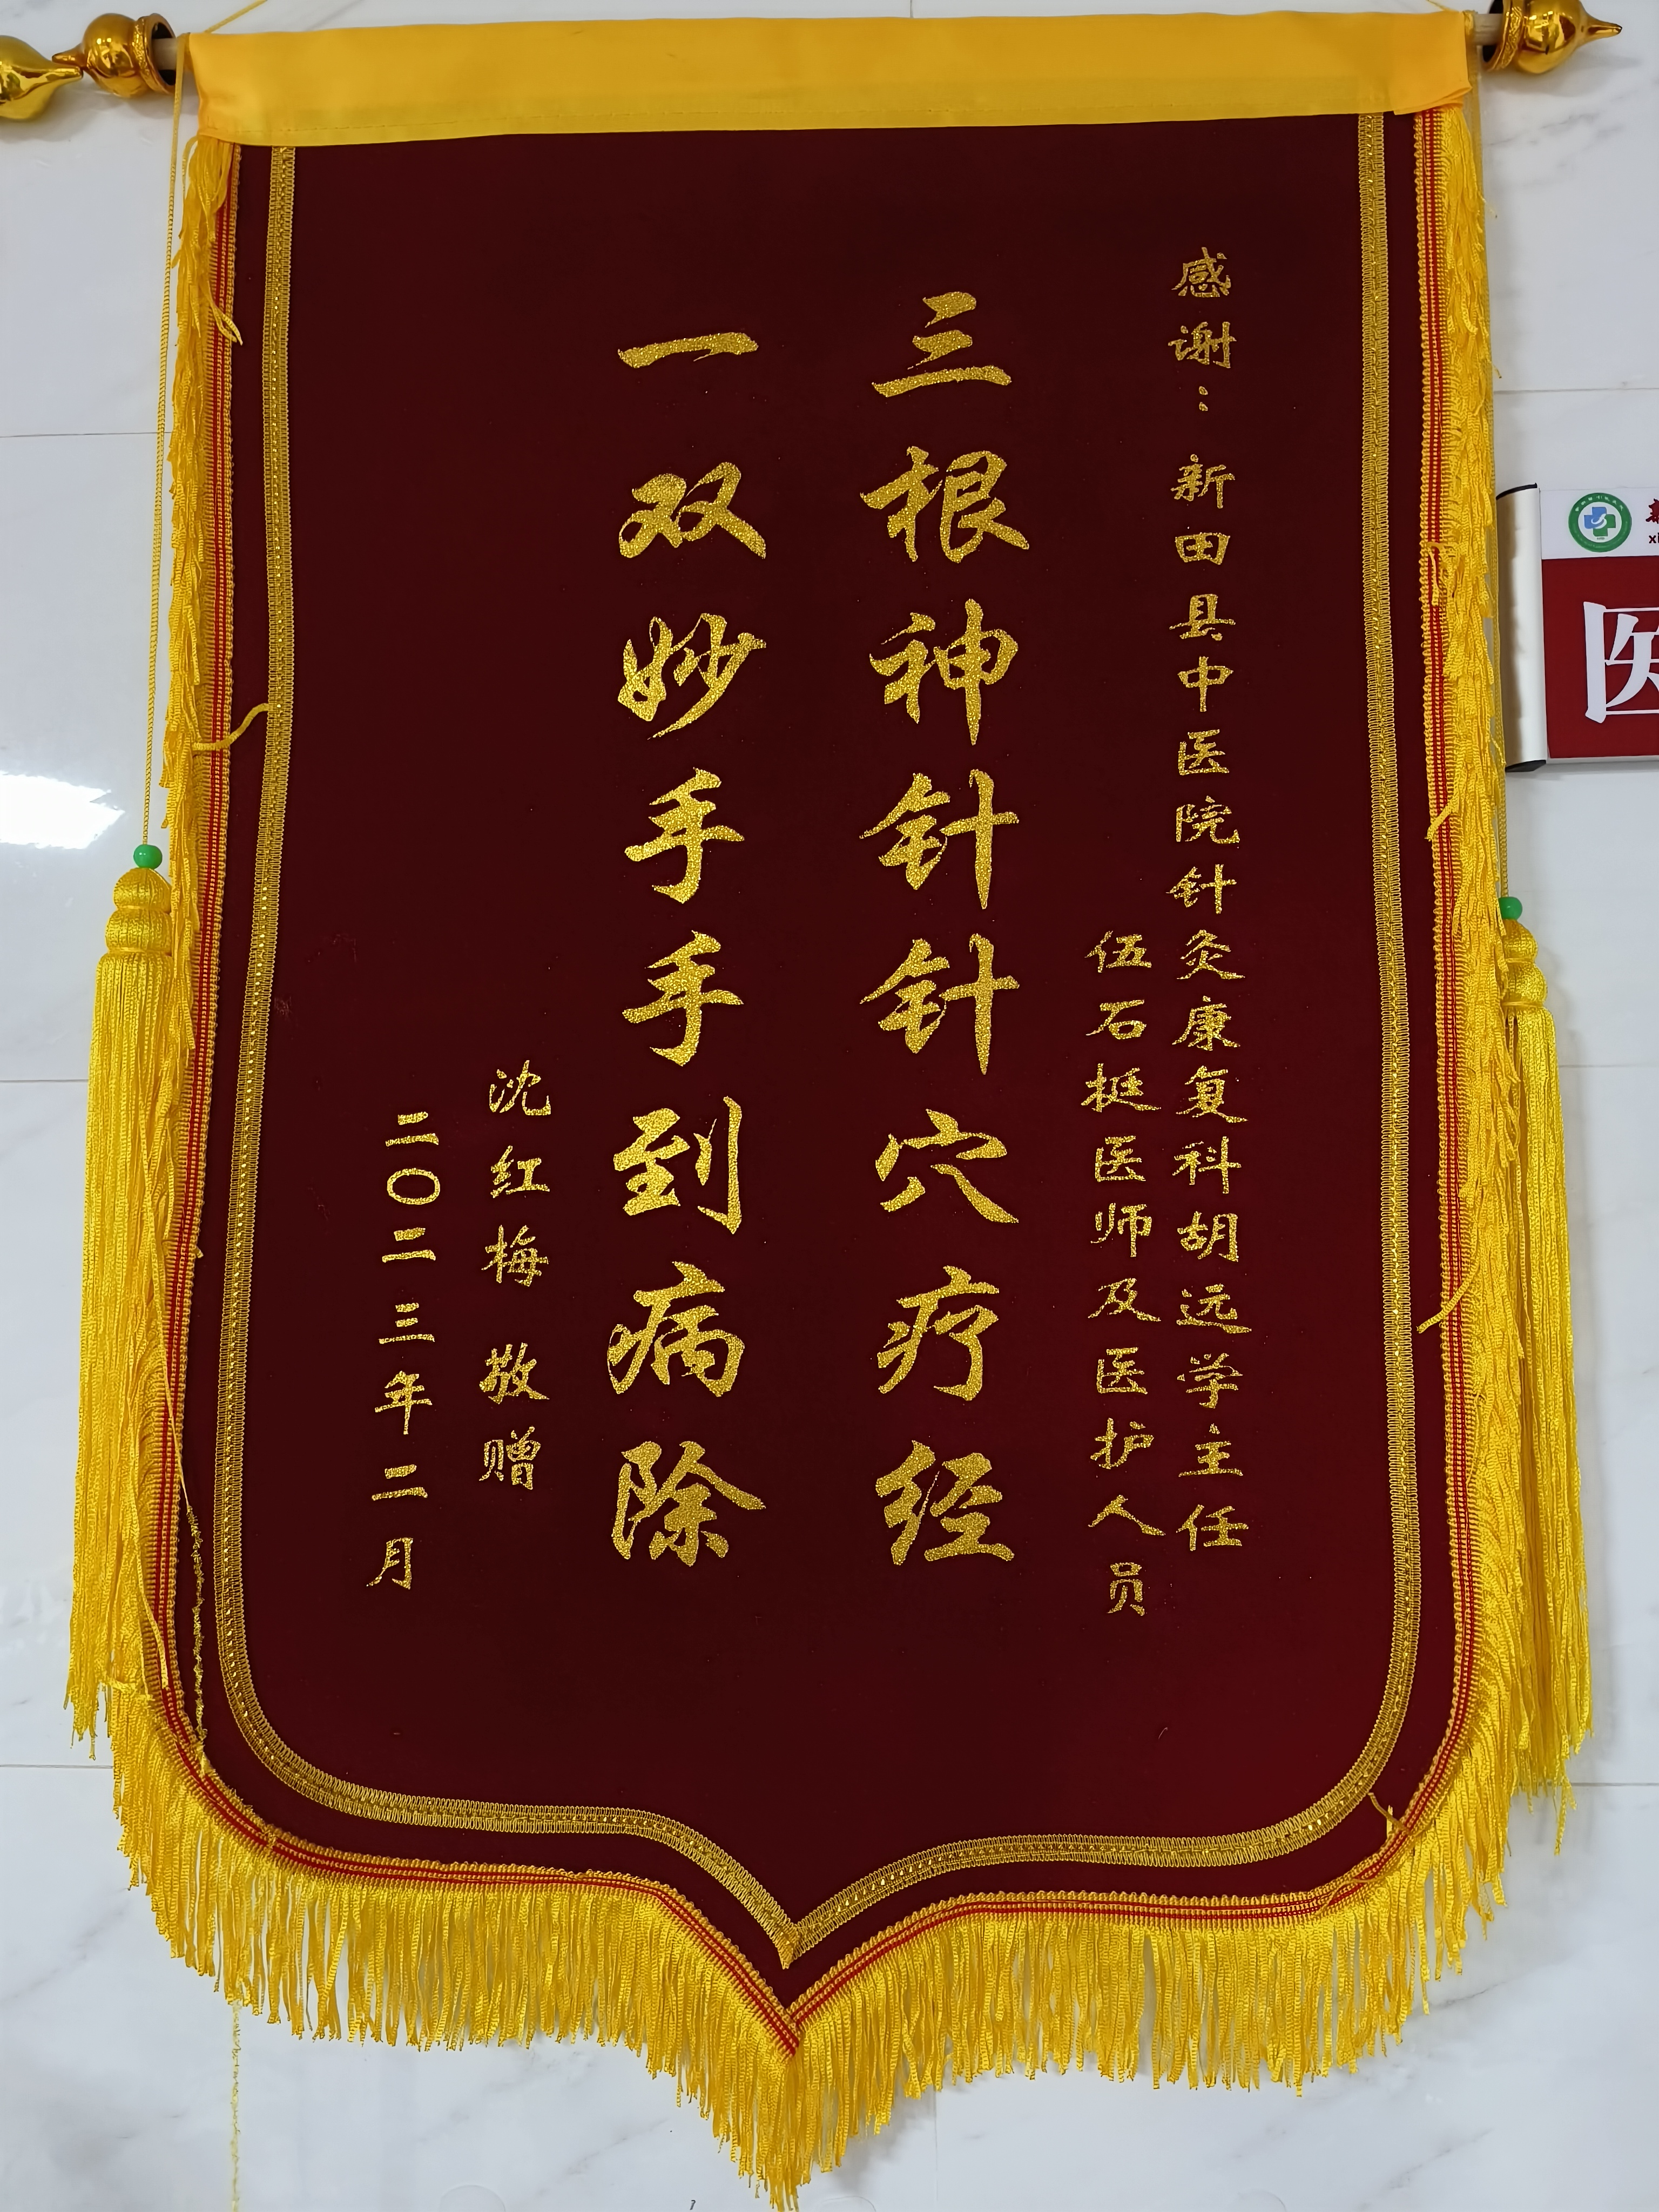 感谢：新田县中医院针灸康复科胡远学主任
伍石挺医师及医护人员
三根神针针穴疗经
一双妙手手到病除
沈红梅 敬赠
二〇二三年二月
医